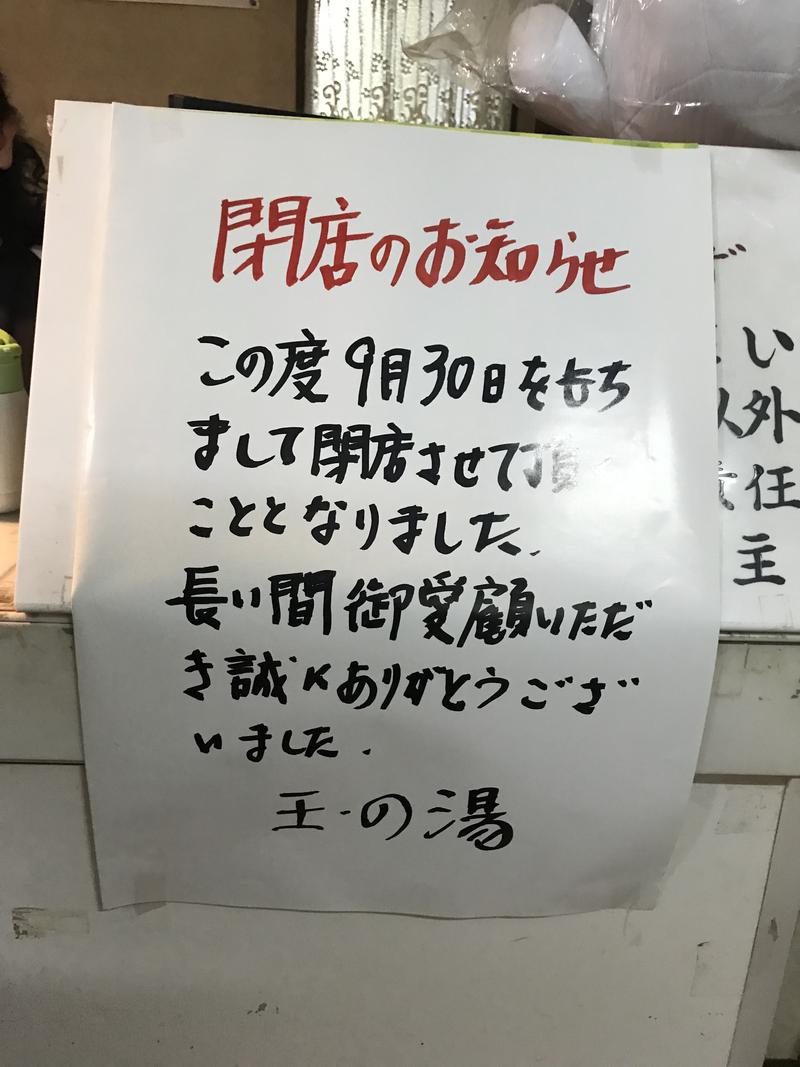 閉店のお知らせ
この度9月30日を持ち
まして閉店させて頂
こととなりました.
長い間御愛顧いただ
き誠にありがとうござ
いました.
玉の湯
い
以外
責任
主